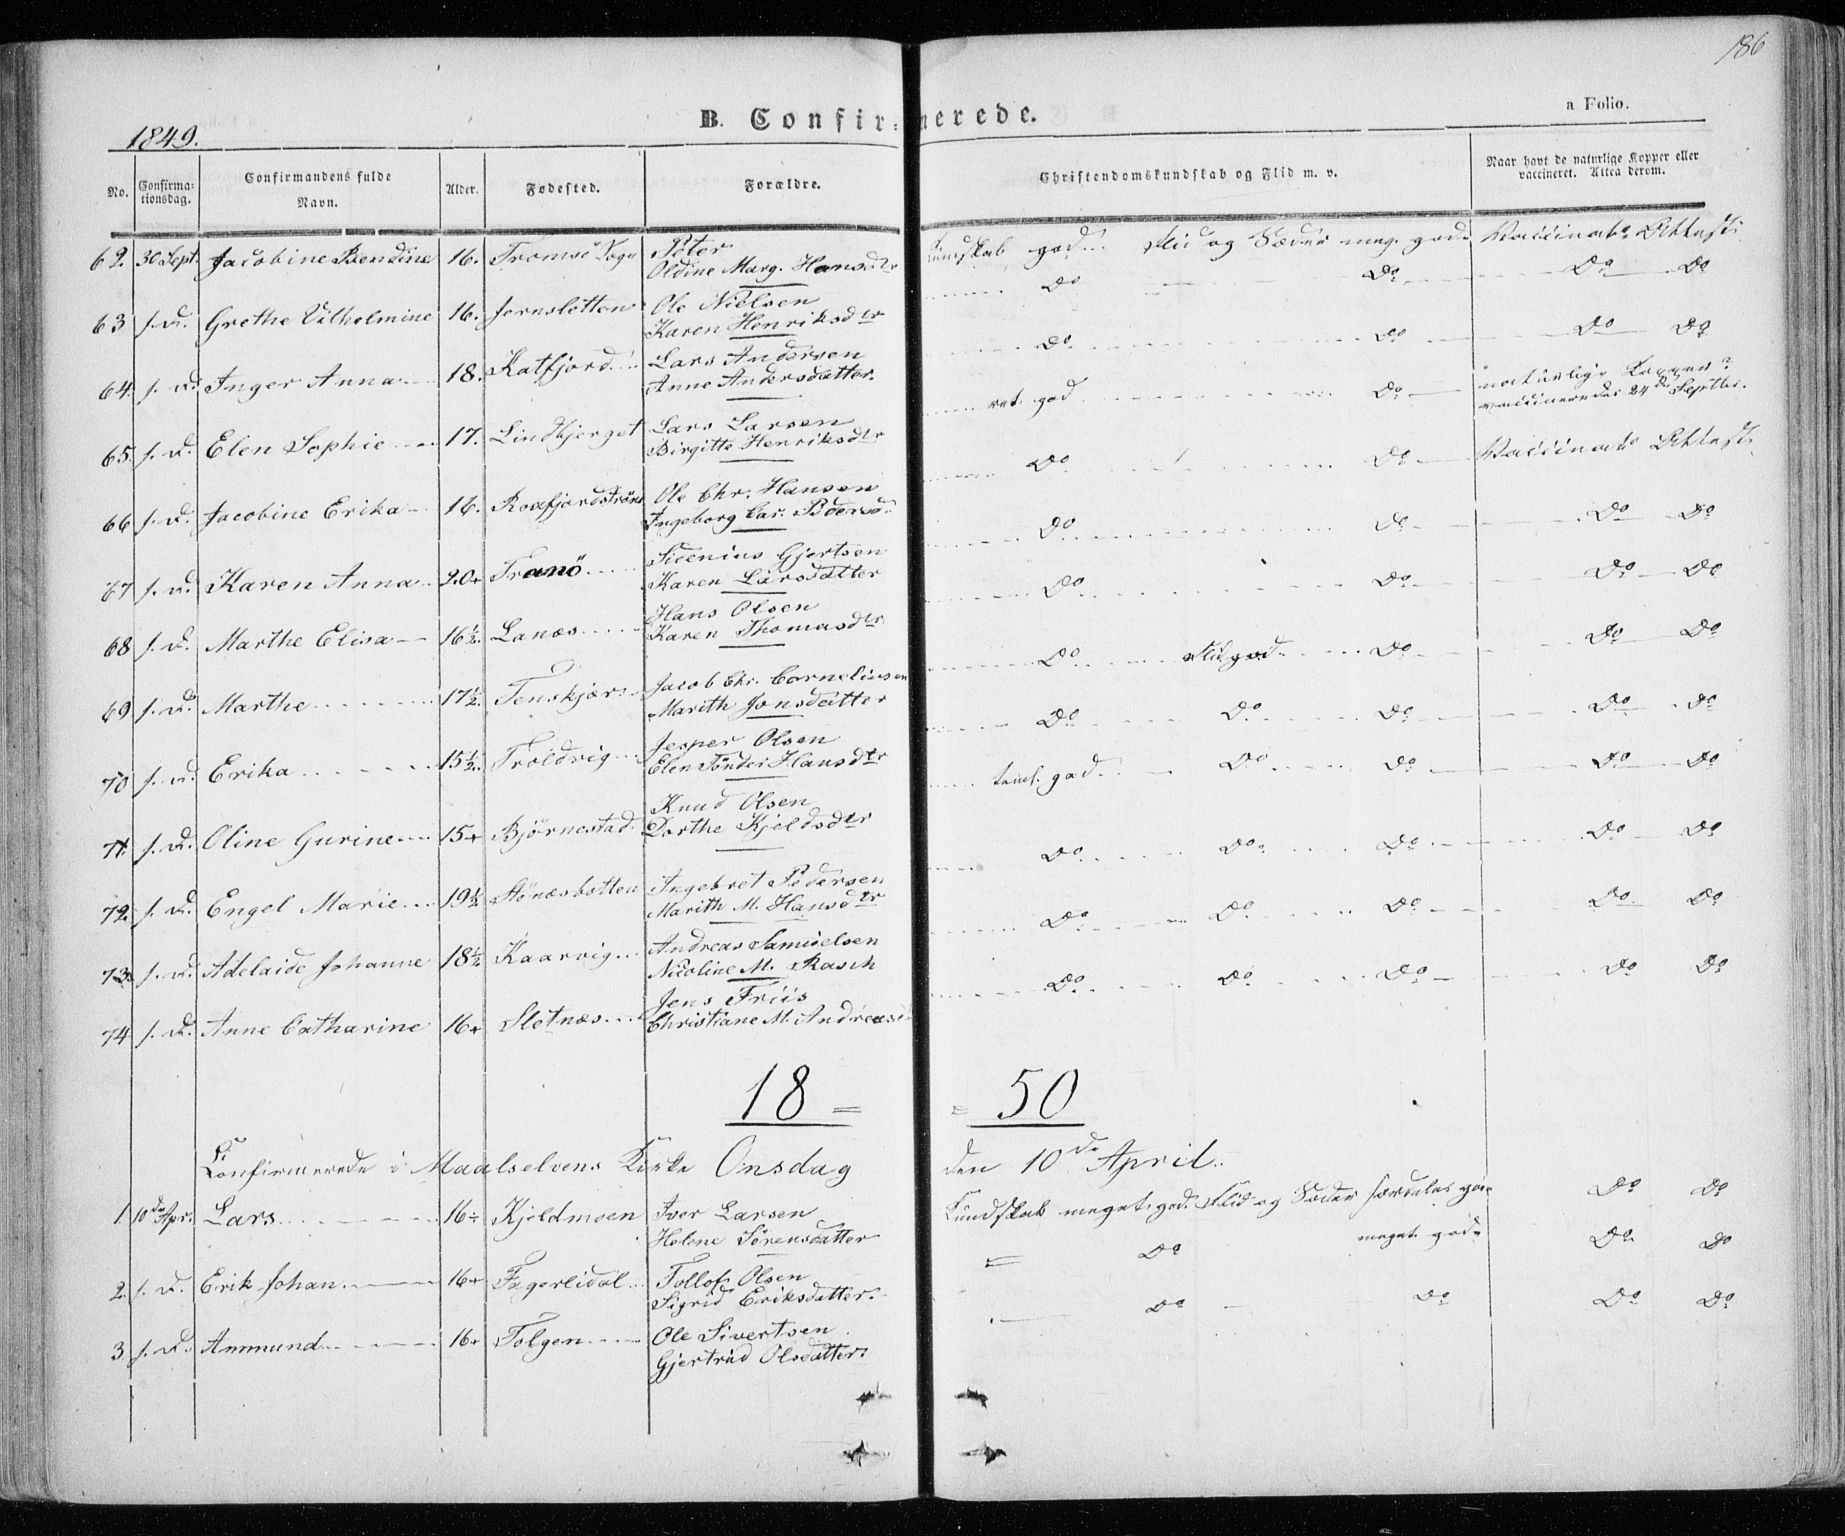 186
B. Confirmerede.
a Folio.
1849.
No. Confirmationsdag. Confirmandens fulde Navn. Alder. Fødested. Forældre. Christendomskundskab og Flid m. v. Naar havt de naturlige Kopper eller vaccineret. Attest derom.
62. 30 Sept. Jacobine Bendine 16. Tromsö Sogn Peter Kundskab god. Flid og Sæder meg. gode Vaccinats Attest.
Oldine Marg. Hansdtr
63 s. d. Grethe Vilhelmine 16. Jernsletten Ole Nielsen Do Do Do Do
Karen Henriksdtr
64. s. d. Inger Anna 18. Katfjord Lars Andersen Do Do Do Do
Anne Andersdatter.
65. s. d. Elen Sophie 17. Lindbjerget Lars Larsen ret god Do naturlige Kopper?
Birgitte Henriksdtr vaccineredes 24de Septbr.
66 s. d. Jacobine Erika 16. Ole Chr. Hansen Do Do Vaccinats Attest.
Ingeborg Car. Pedersd.
67 s. d. Karen Anna 20+ Tranö Sidenius Gjertsen Do Do Do Do
Karen Larsdatter
68 s. d. Marthe Elisa 16½. Lanæs Hans Olsen Do Do Do Do
Karen Thomasdtr
69 s. d. Marthe 17½. Tenskjær Jacob Chr. Corneliusen Do Flid god Do Do Do
Marith Jonsdatter
70 s. d. Erika 15½. Troldvig Jesper Olsen Do Do Do Do Do
Elen Tönder Hansdtr
71. s. d. Oline Gurine 15+ Björnestad Knud Olsen teml. god Do Do Do Do
Dorthe Kjeldsdtr
72. s. d. Engel Marie 19½ Stönæsbotten Ingebret Pedersen Do Do Do Do Do
Marith M. Hansdtr
73. s. d. Adelaide Johanne 18½ Kaarvig Andreas Samuelsen Do Do Do Do Do
Nicoline M. Rasch
74 s. d. Anne Catharine 16+ Sletnæs Jens Friis Do Do Do Do Do
Christiane M. Andreasd
18 = = 50
Confirmerede i Maalselvens Kirke Onsdag den 10de April.
1. 10de Apr. Lars 16÷ Kjeldmoen Iver Larsen Kundskab meget god. Flid og Sæder særdeles gode Do Do
Helene Sörensdatter
2. s. d. Erik Johan 16+ Fagerlidal Tollof Olsen Do meget gode Do Do
Sigrid Eriksdatter.
3. s. d. Ammund 16+ Tolgen Ole Sivertsen Do Do Do Do
Gjertrud Olsdatter